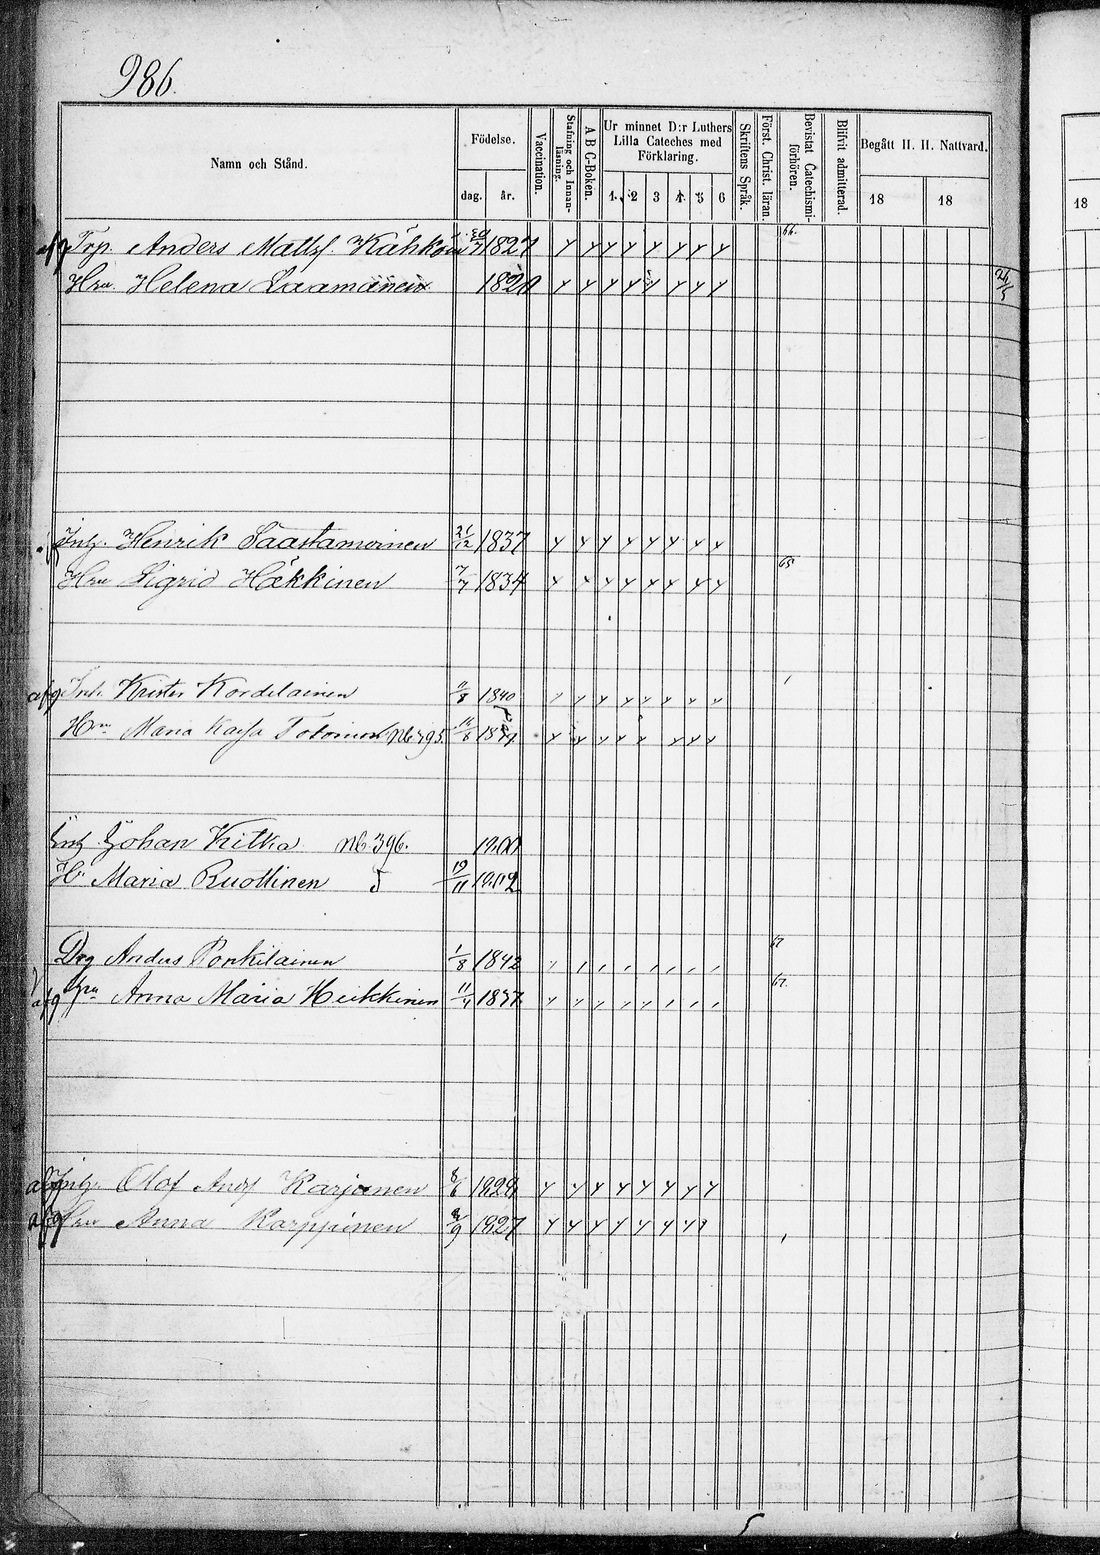 986.
Namn och Stånd.
Födelse.
dag.
år.
Vaccination.
Stafning och Innanläsning.
A B C-Boken.
Ur minnet D:r Luthers Lilla Cateches med Förklaring.
1. 2 3 4 5 6
Skriftens Språk.
Först. Christ. läran.
Bevistat Catechismiförhören.
Blifvit admitterad.
Begått H. H. Nattvard.
18 18
18
afg Trp. Anders Matts. Kähkön 1827 66.
Hru Helena Laamanen 1820
Inh. Henrik Saastamoinen 26/12 1837
Hru Sigrid Häkkinen 7/7 1834 65
afg Inh. Krister Kordelainen 11/8 1840
Hru Maria Kajsa Toloninen No 795. 11/6
Inh Johan Kitka No 396.
H. Maria Ruottinen 19/11
Drg Anders Ponkilainen 1/8 1842 67
afg Hru Anna Maria Heikkinen 11/4 1837 67.
afg Inh. Olof Ands Karjanen 1829
afg Hru Anna Karppinen 1827